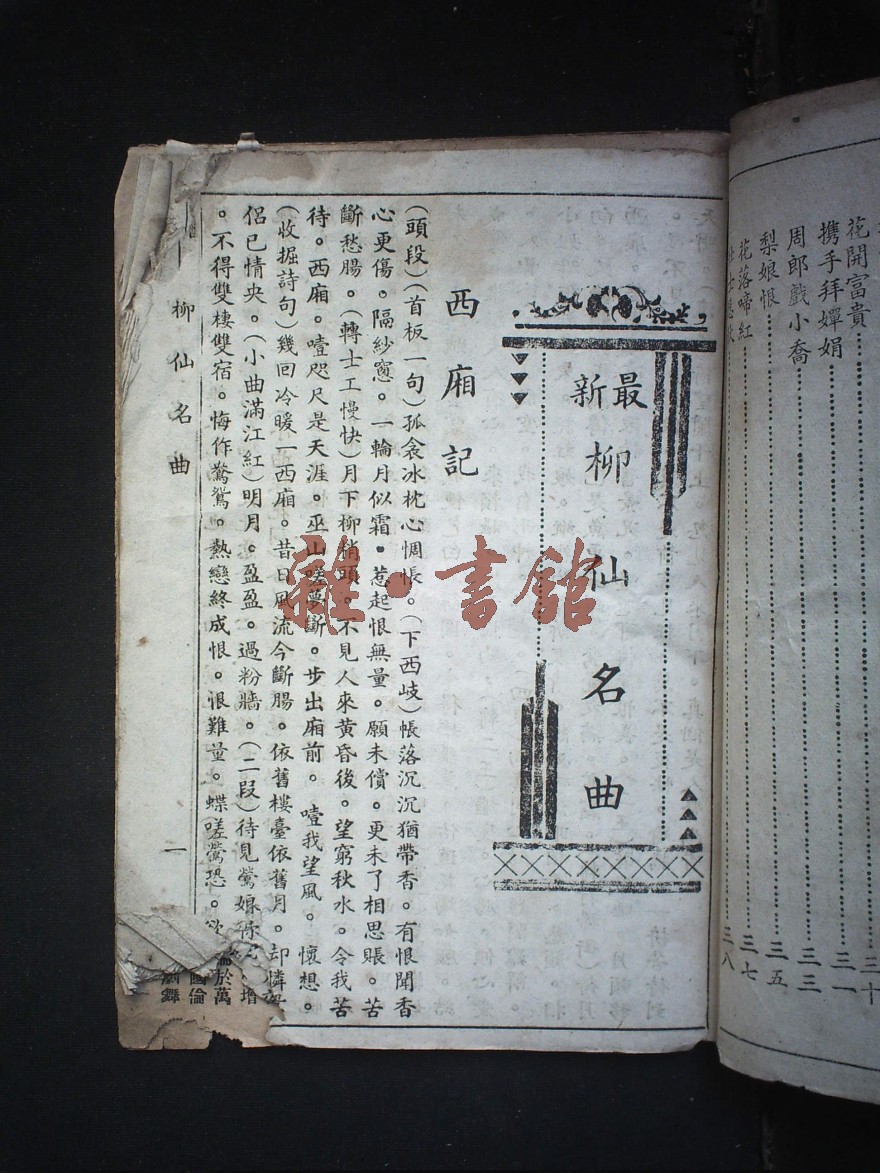 三十
花開富貴……三一
携手拜嬋娟……三三
周郎戲小喬……三五
梨娘恨……三七
花落啼紅……三八
最新
柳仙名曲
西廂記
(頭段)(首板一句)孤衾冰枕心惆悵。(下西岐)帳落沉沉猶帶香。有恨聞香
心更傷。隔紗窻。一輪月似霜。惹起恨無量。願未償。更未了相思賬。苦
斷愁腸。(轉士工慢快)月下柳梢頭。不見人來黃昏後。望窮秋水。令我苦
待。西廂。噎咫尺是天涯。巫山嗟夢斷。步出廂前。噎我望風。懷想。
(收掘詩句)幾回冷暖一西廂。昔日風流今斷腸。依舊樓臺依舊月。却憐
侶已情央。(小曲滿江紅)明月。盈盈。過粉牆。(二段)待見鶯娘
。不得雙棲雙宿。悔作鴛鴦。熱戀終成恨。恨難量。蝶嗟鶯恐。欲
於萬
倫
舞
柳仙名曲
一
雜·書館